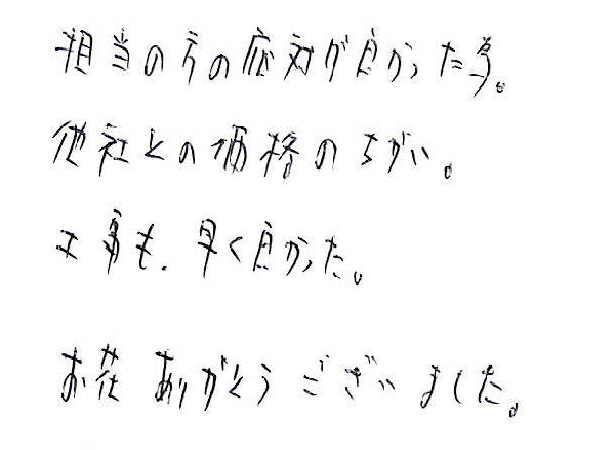 担当の方の応対が良かった事。
他社との価格のちがい。
工事も、早く良かった。
お花ありがとうございました。